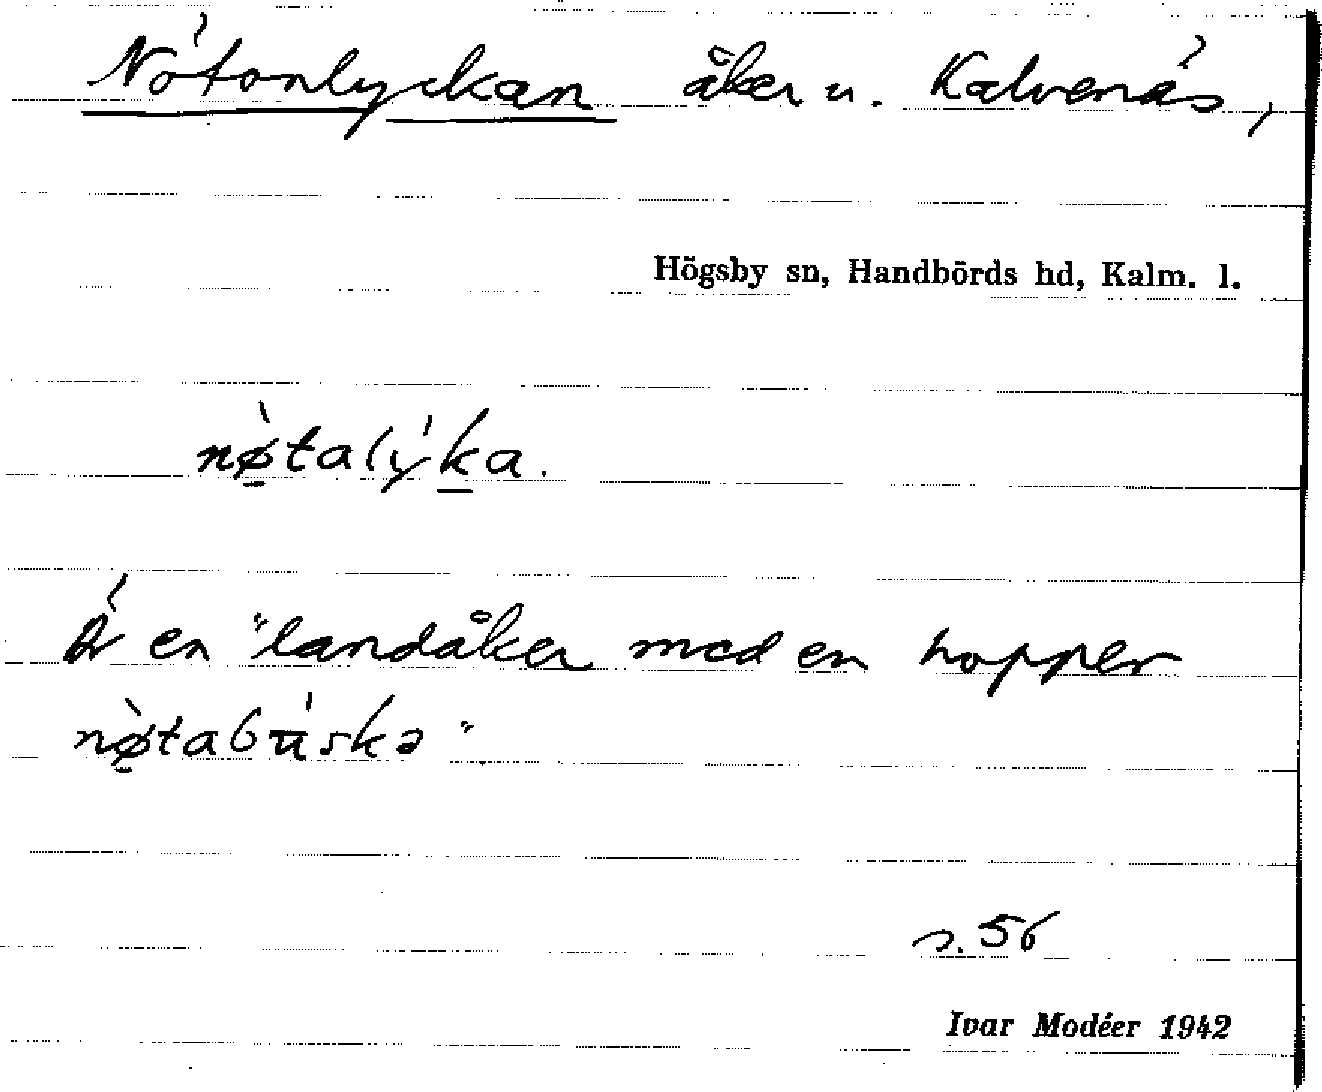 Nötonlyckan åker u. Kalvenäs,
Högsby sn, Handbörds hd, Kalm. l.
nø̀talýka.
Är en "landåker med en hopper
nø̀tabúskə"
s. 56
Ivar Modéer 1942